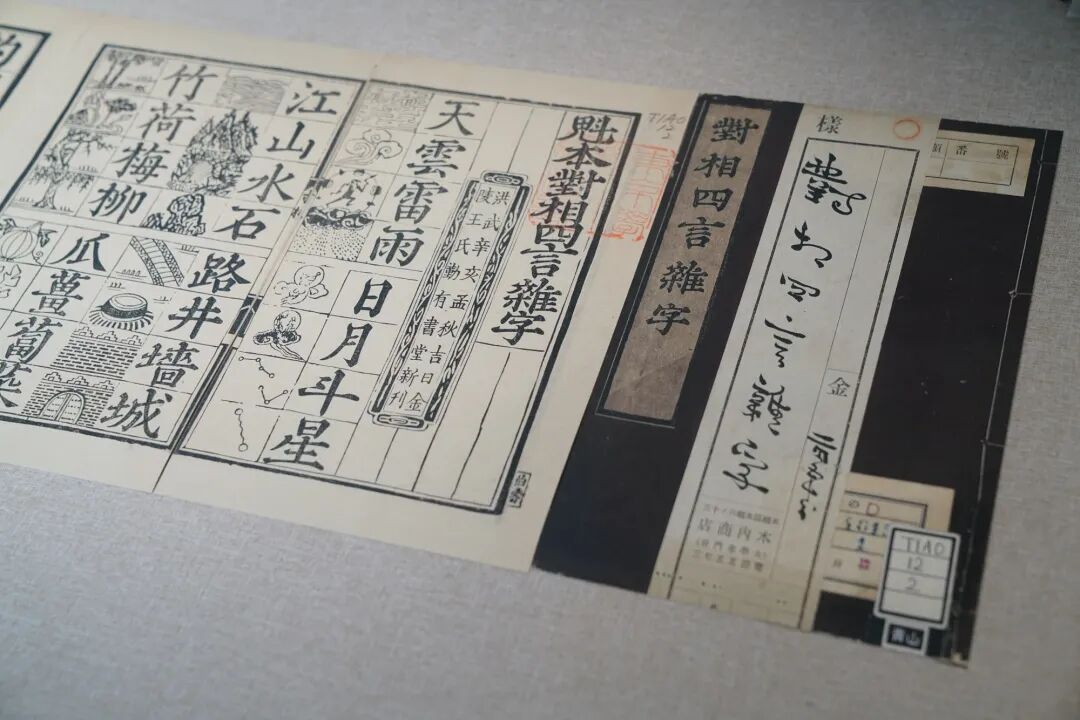 番號
樣
對相四言雜字
金
木内商店
TIAO
12
2
對相四言雜字
TIAO
魁本對相四言雜字
洪武辛亥孟秋吉日金
陵王氏勤有書堂新刊
天雲雷雨
日月斗星
江山水石
路井墻城
竹荷梅柳
瓜薑